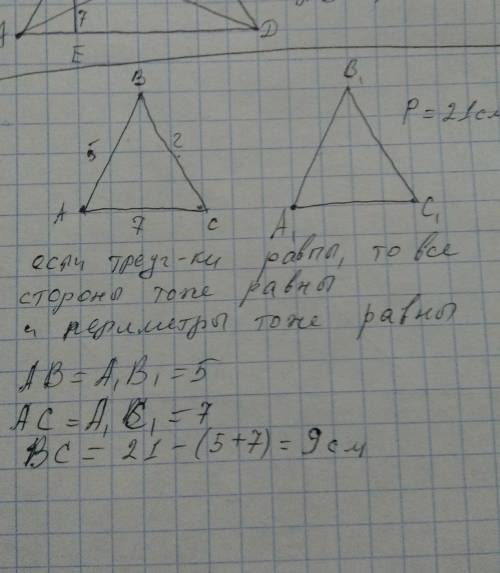 7
A
E
D
B
5
?
A
7
C
B₁
P = 21 см
A₁
C₁
если треуг-ки равны, то все
стороны тоже равны
и периметры тоже равны
AB = A₁B₁ = 5
AC = A₁C₁ = 7
BC = 21 - (5+7) = 9 см